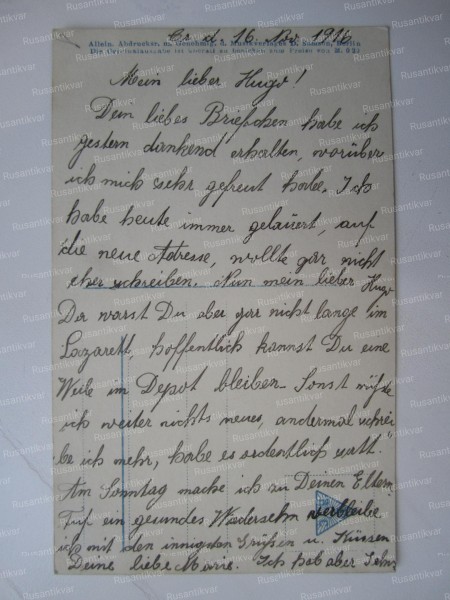 d. 16. Nov 1916
Allein. Abdrucksr. m. Genehmig. d. Musikverlages
Die Originalausgabe ist
Mein lieber Hugo!
Dein liebes Briefchen habe ich
gestern dankend erhalten, worüber
ich mich sehr gefreut habe. Ich
habe heute immer gelauert, auf
die neue Adresse, wollte gar nicht
eher schreiben. Nun mein lieber Hugo
Da warst Du aber gar nicht lange im
Lazarett, hoffentlich kannst Du eine
Weile im Depot bleiben. Sonst wüßte
ich weiter nichts neues, andermal schrei
be ich mehr, habe es ordentlich satt.
Am Sonntag mache ich zu Deinen Eltern.
Auf ein gesundes Wiedersehn verbleibe
ich mit den innigsten Grüßen u. Küssen
Deine liebe Marie. Ich hab aber
Rusantikvar